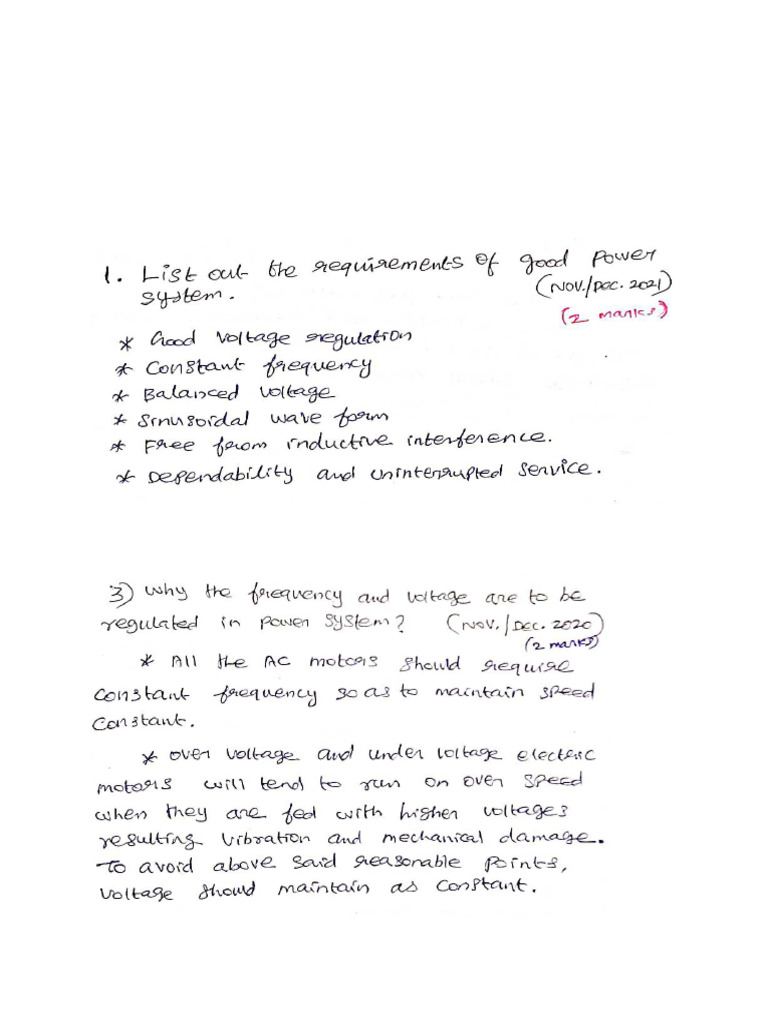 1. List out the requirements of good power
system.
(Nov./Dec. 2021)
(2 marks)
* Good voltage regulation
* Constant frequency
* Balanced voltage
* Sinusoidal wave form
* Free from inductive interference.
* Dependability and uninterrupted service.
3) Why the frequency and voltage are to be
regulated in power system? (Nov./Dec. 2020)
(2 marks)
* All the AC motors should require
constant frequency so as to maintain speed
constant.
* over voltage and under voltage electric
motors will tend to run on over speed
when they are fed with higher voltages
resulting vibration and mechanical damage.
To avoid above said reasonable points,
voltage should maintain as constant.